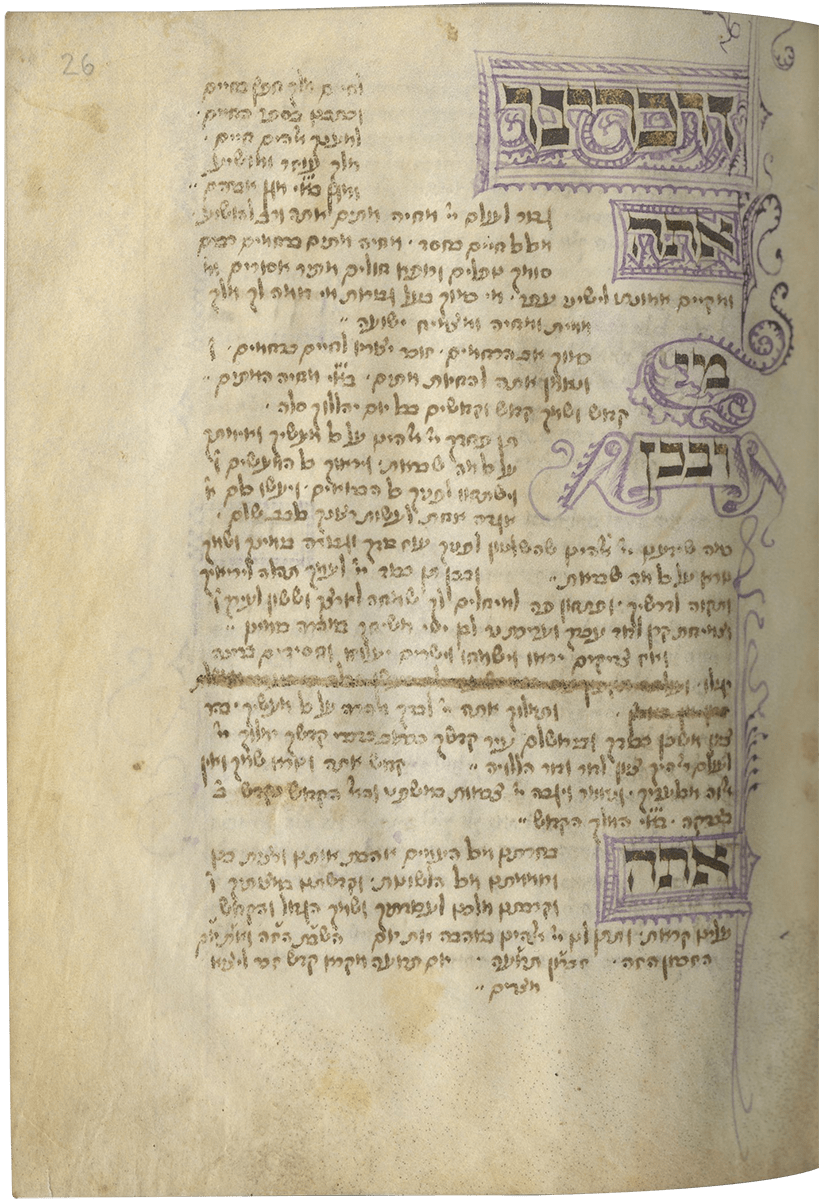 26
זכרינו לחיים מלך חפץ בחיים
וכתבנו בספר החיים
למענך אלהים חיים
מלך עוזר ומושיע
ומגן בא"י מגן אברהם
אתה גבור לעולם יי' מחיה מתים אתה ורב להושיע
מכלכל חיים בחסד · מחיה מתים ברחמים רבים
סומך נופלים ורופא חולים מתיר אסורים
ומקיים אמונתו לישיני עפר · מי כמוך בעל גבורות מי דומה לך מלך
ממית ומחיה ומצמיח ישועה
מי כמוך אב הרחמים · זוכר יצוריו לחיים ברחמים · ו
ונאמן אתה להחיות מתים · בא"י מחיה המתים
קדוש ושמך קדוש וקדושים בכל יום יהללוך סלה ·
ובכן תן פחדך יי' אלהינו על כל מעשיך ואימתך
על כל מה שבראת · וייראוך כל המעשים ו
וישתחוו לפניך כל הברואים · ויעשו כולם א
אגודה אחת לעשות רצונך בלבב שלם ·
כמה שידענו יי' אלהינו שהשלטון לפניך עוז בידך וגבורה בימינך ושמך
נורא על כל מה שבראת · ובכן תן כבוד יי' לעמך תהלה ליריאיך
ותקוה לדורשיך · ופתחון פה למיחלים לך שמחה לארצך וששון לעירך ו
וצמיחת קרן לדוד עבדך ועריכת נר לבן ישי משיחך במהרה בימינו
ואז צדיקים יראו וישמחו וישרים יעלוזו וחסידים ברינה
יגילו ·
ותמלוך אתה יי' לבדך מהרה על כל מעשיך · בהר
ציון משכן כבודך ובירושלם עיר קדשך ככתוב בדברי קדשך ימלוך יי'
לעולם אלהיך ציון לדור ודור הללויה קדוש אתה ונורא שמך ואין
אלוה מבלעדיך · ויגבה יי' צבאות במשפט והאל הקדוש נקדש ב
בצדקה · בא"י המלך הקדוש
אתה בחרתנו מכל העמים אהבת אותנו ורצית בנו
ורוממתנו מכל הלשונות · וקדשתנו במצותיך ו
וקרבתנו מלכנו לעבודתך ושמך הגדול והקדוש
עלינו קראת · ותתן לנו יי' אלהינו באהבה את יום
הזכרון הזה · זכרון תרועה · יום תרועה מקרא קדש זכר ליציא
מצרים